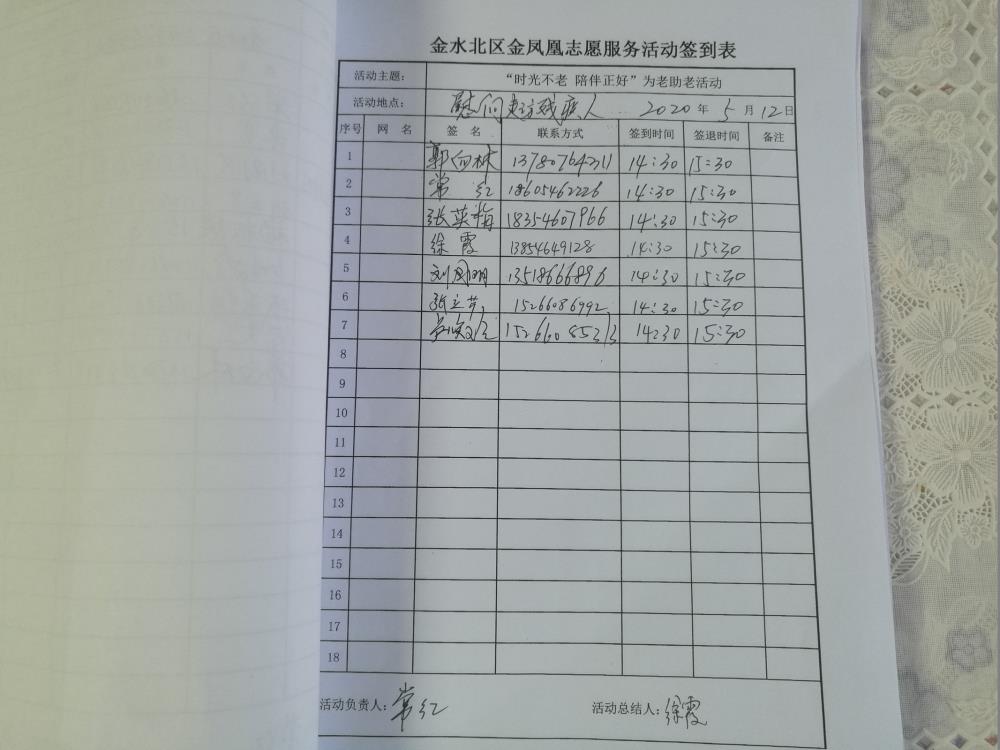 金水北区金凤凰志愿服务活动签到表
活动主题： “时光不老 陪伴正好”为老助老活动
活动地点： 慰问走访残疾人 2020 年 5 月 12 日
序号 网 名 签 名 联系方式 签到时间 签退时间 备注
1 郭向林 14:30 15:30
2 常 红 18605462226 14:30 15:30
3 张英梅 18354607966 14:30 15:30
4 徐 霞 13854649128 14:30 15:30
5 13518666896 14:30 15:30
6 15266086992 14:30 15:30
7 15266085313 14:30 15:30
8
9
10
11
12
13
14
15
16
17
18
活动负责人： 常红 活动总结人： 徐霞